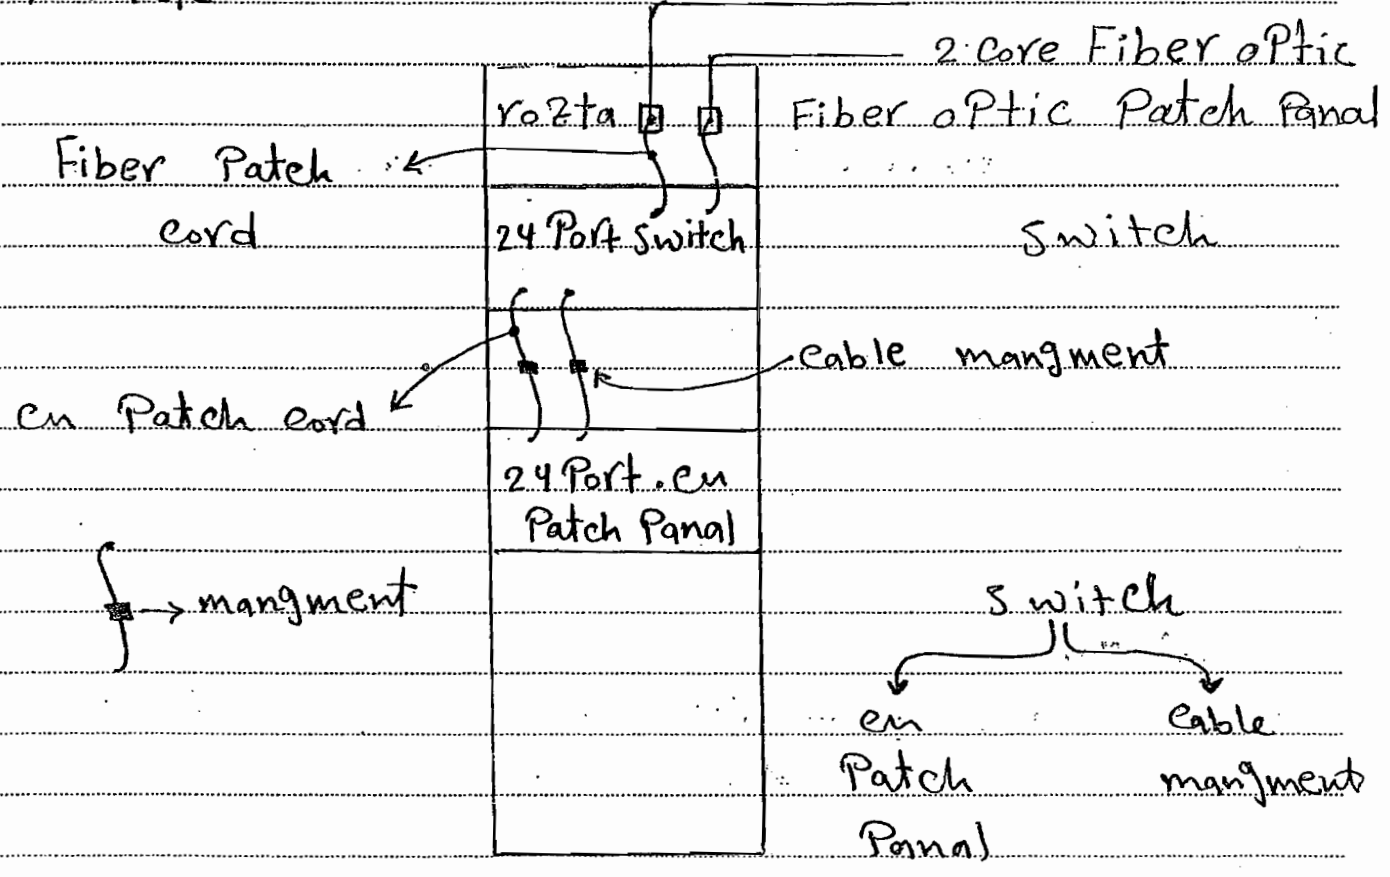 2 core Fiber oPtic
rozta Fiber oPtic Patch Panal
Fiber Patch
cord
24 Port switch
switch
cable mangment
cu Patch cord
24 Port cu
Patch Panal
mangment
switch
cu
Patch
Panal
cable
mangment